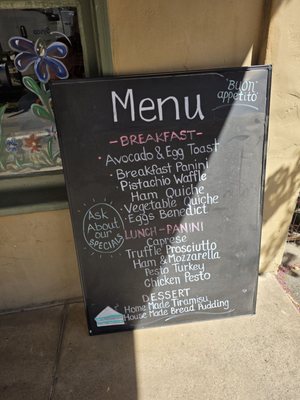 Menu
"BUON"
appetito
-BREAKFAST-
• Avocado & Egg Toast
• Breakfast Panini
• Pistachio Waffle
Ham Quiche
• Vegetable Quiche
• Eggs Benedict
Ask
About
our
SPECIALS
LUNCH-PANINI
Caprese
Truffle Prosciutto
Ham & Mozzarella
Pesto Turkey
Chicken Pesto
DESSERT
Home Made Tiramisu
House Made Bread Pudding